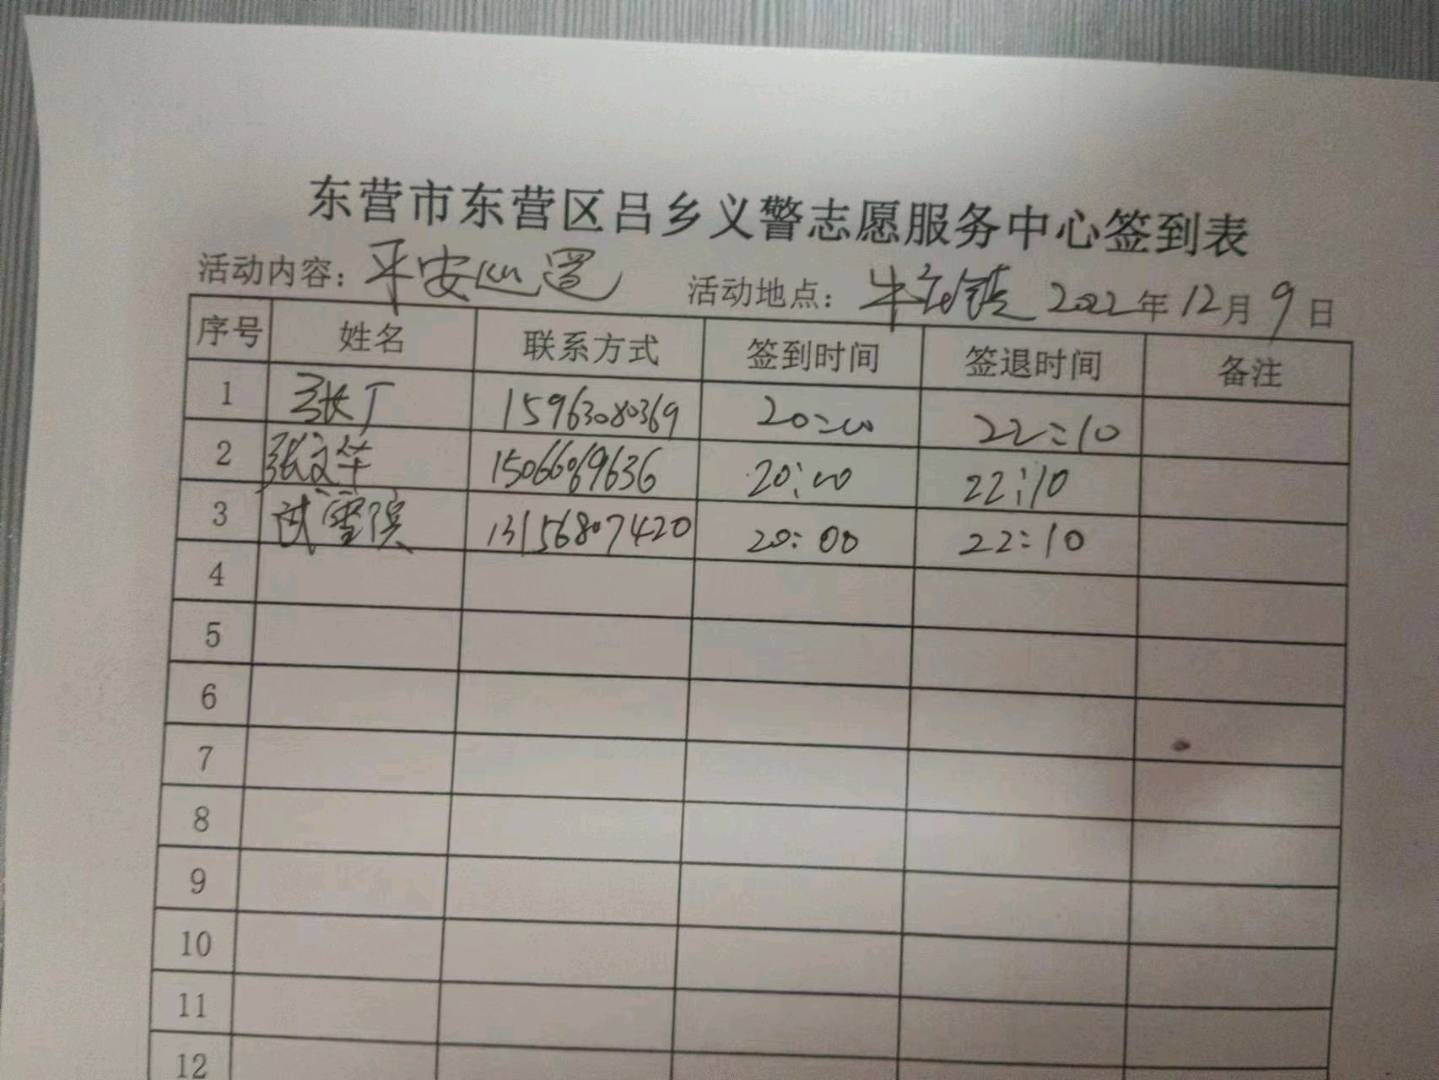 东营市东营区吕乡义警志愿服务中心签到表
活动内容：平安巡逻 活动地点：牛庄镇 2022年12月9日
序号 姓名 联系方式 签到时间 签退时间 备注
1 张丁 15963080369 20:00 22:10
2 张文华 15066069636 20:00 22:10
3 武雪滨 13156807420 20:00 22:10
4
5
6
7
8
9
10
11
12